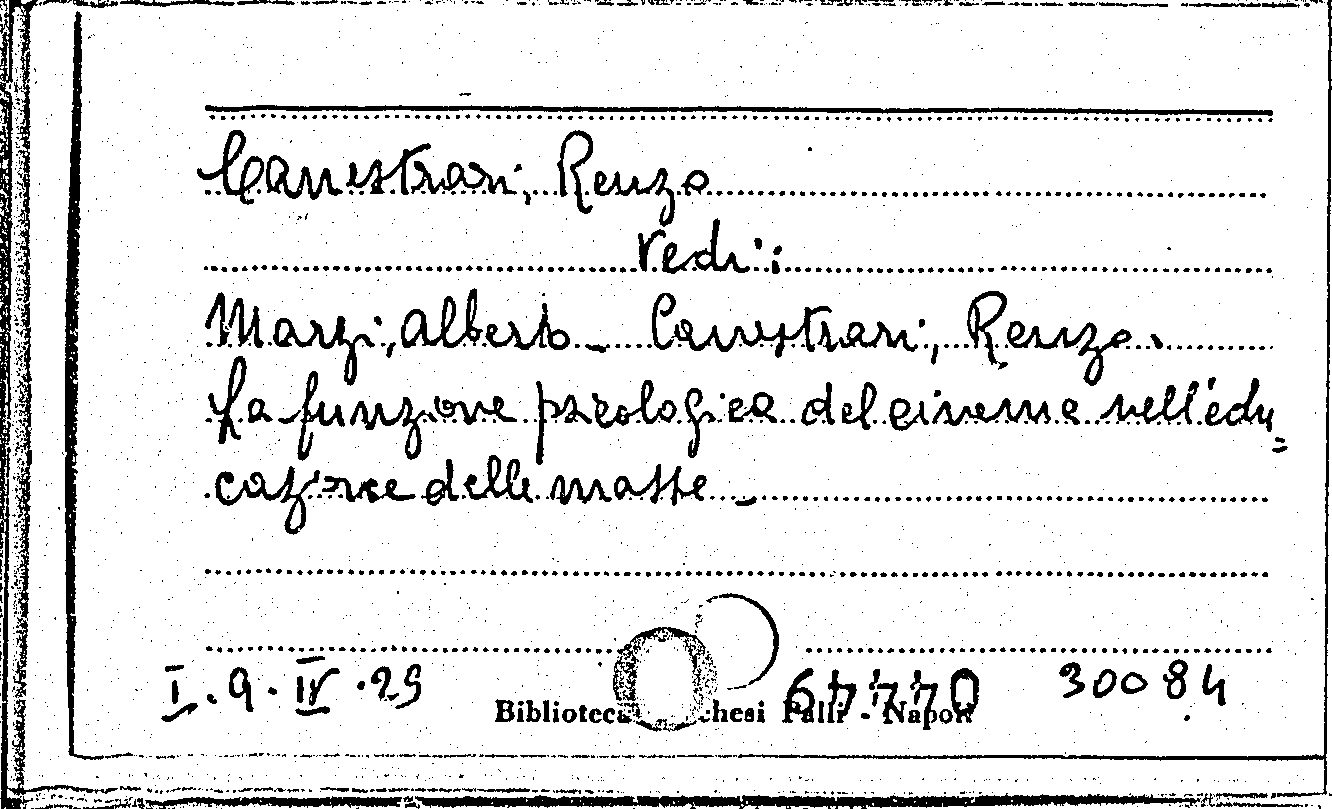 Canestrari, Renzo
Vedi:
Marzi, Alberto - Canestrari, Renzo.
La funzione psicologica del cinema nell'edu=
cazione delle masse -
I.9.IV.29
64770 30084
Biblioteca hesi Palli - Napoli